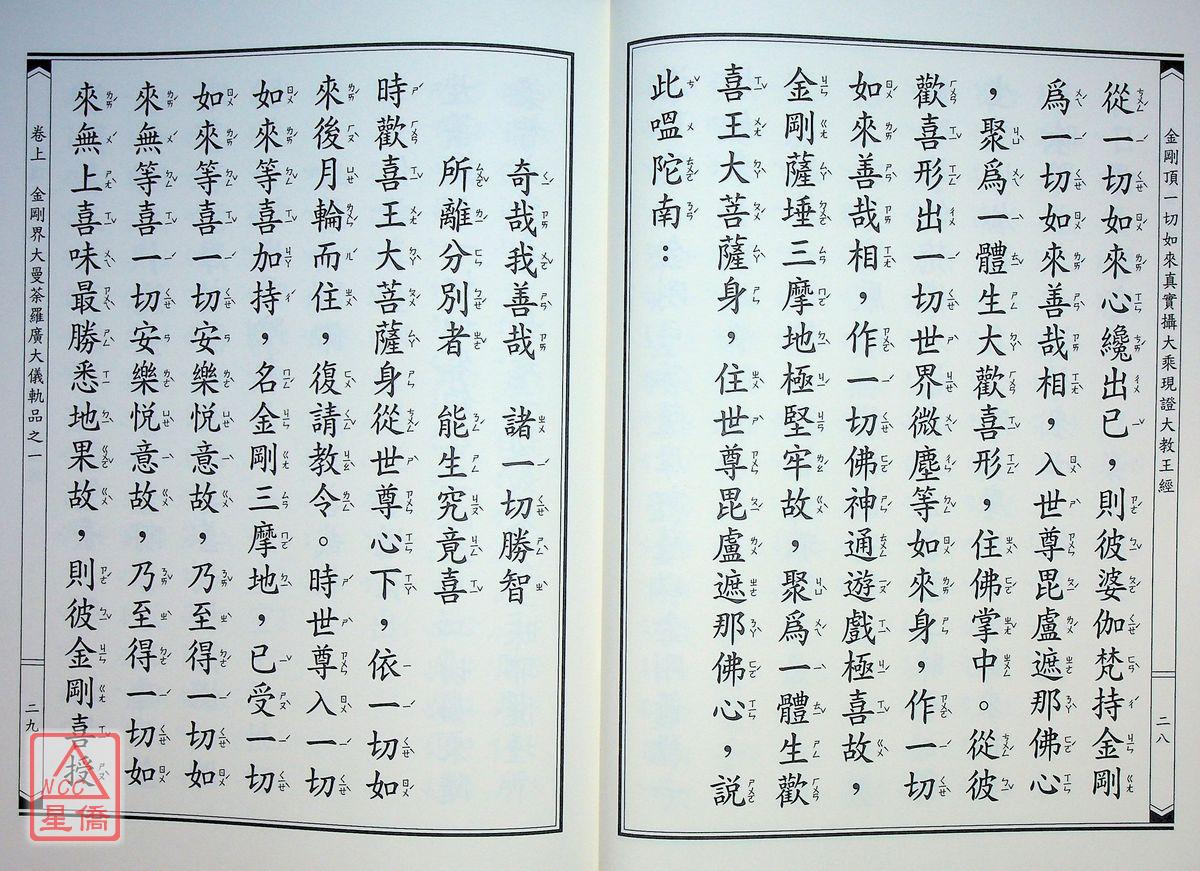 金剛頂一切如來真實攝大乘現證大教王經
二八
從一切如來心纔出已，則彼婆伽梵持金剛
爲一切如來善哉相，入世尊毘盧遮那佛心
，聚爲一體生大歡喜形，住佛掌中。從彼
歡喜形出一切世界微塵等如來身，作一切
如來善哉相，作一切佛神通遊戲極喜故，
金剛薩埵三摩地極堅牢故，聚爲一體生歡
喜王大菩薩身，住世尊毘盧遮那佛心，說
此嗢陀南：
奇哉我善哉　諸一切勝智
所離分別者　能生究竟喜
時歡喜王大菩薩身從世尊心下，依一切如
來後月輪而住，復請教令。時世尊入一切
如來等喜加持，名金剛三摩地，已受一切
如來等喜一切安樂悅意故，乃至得一切如
來無等喜一切安樂悅意故，乃至得一切如
來無上喜味最勝悉地果故，則彼金剛喜授
卷上　金剛界大曼荼羅廣大儀軌品之一
二九
NCC
星僑